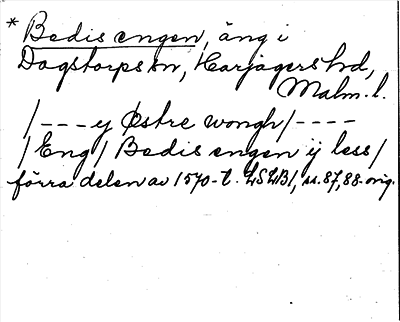 * Bedis engen, äng i
Dagstorps sn, Harjagers hd,
Malm. l.
/---ej Østre wongh/----
/Eng/ Bedis engen ij less/
förra delen av 1570-t. LSLB1, ss. 87, 88. orig.